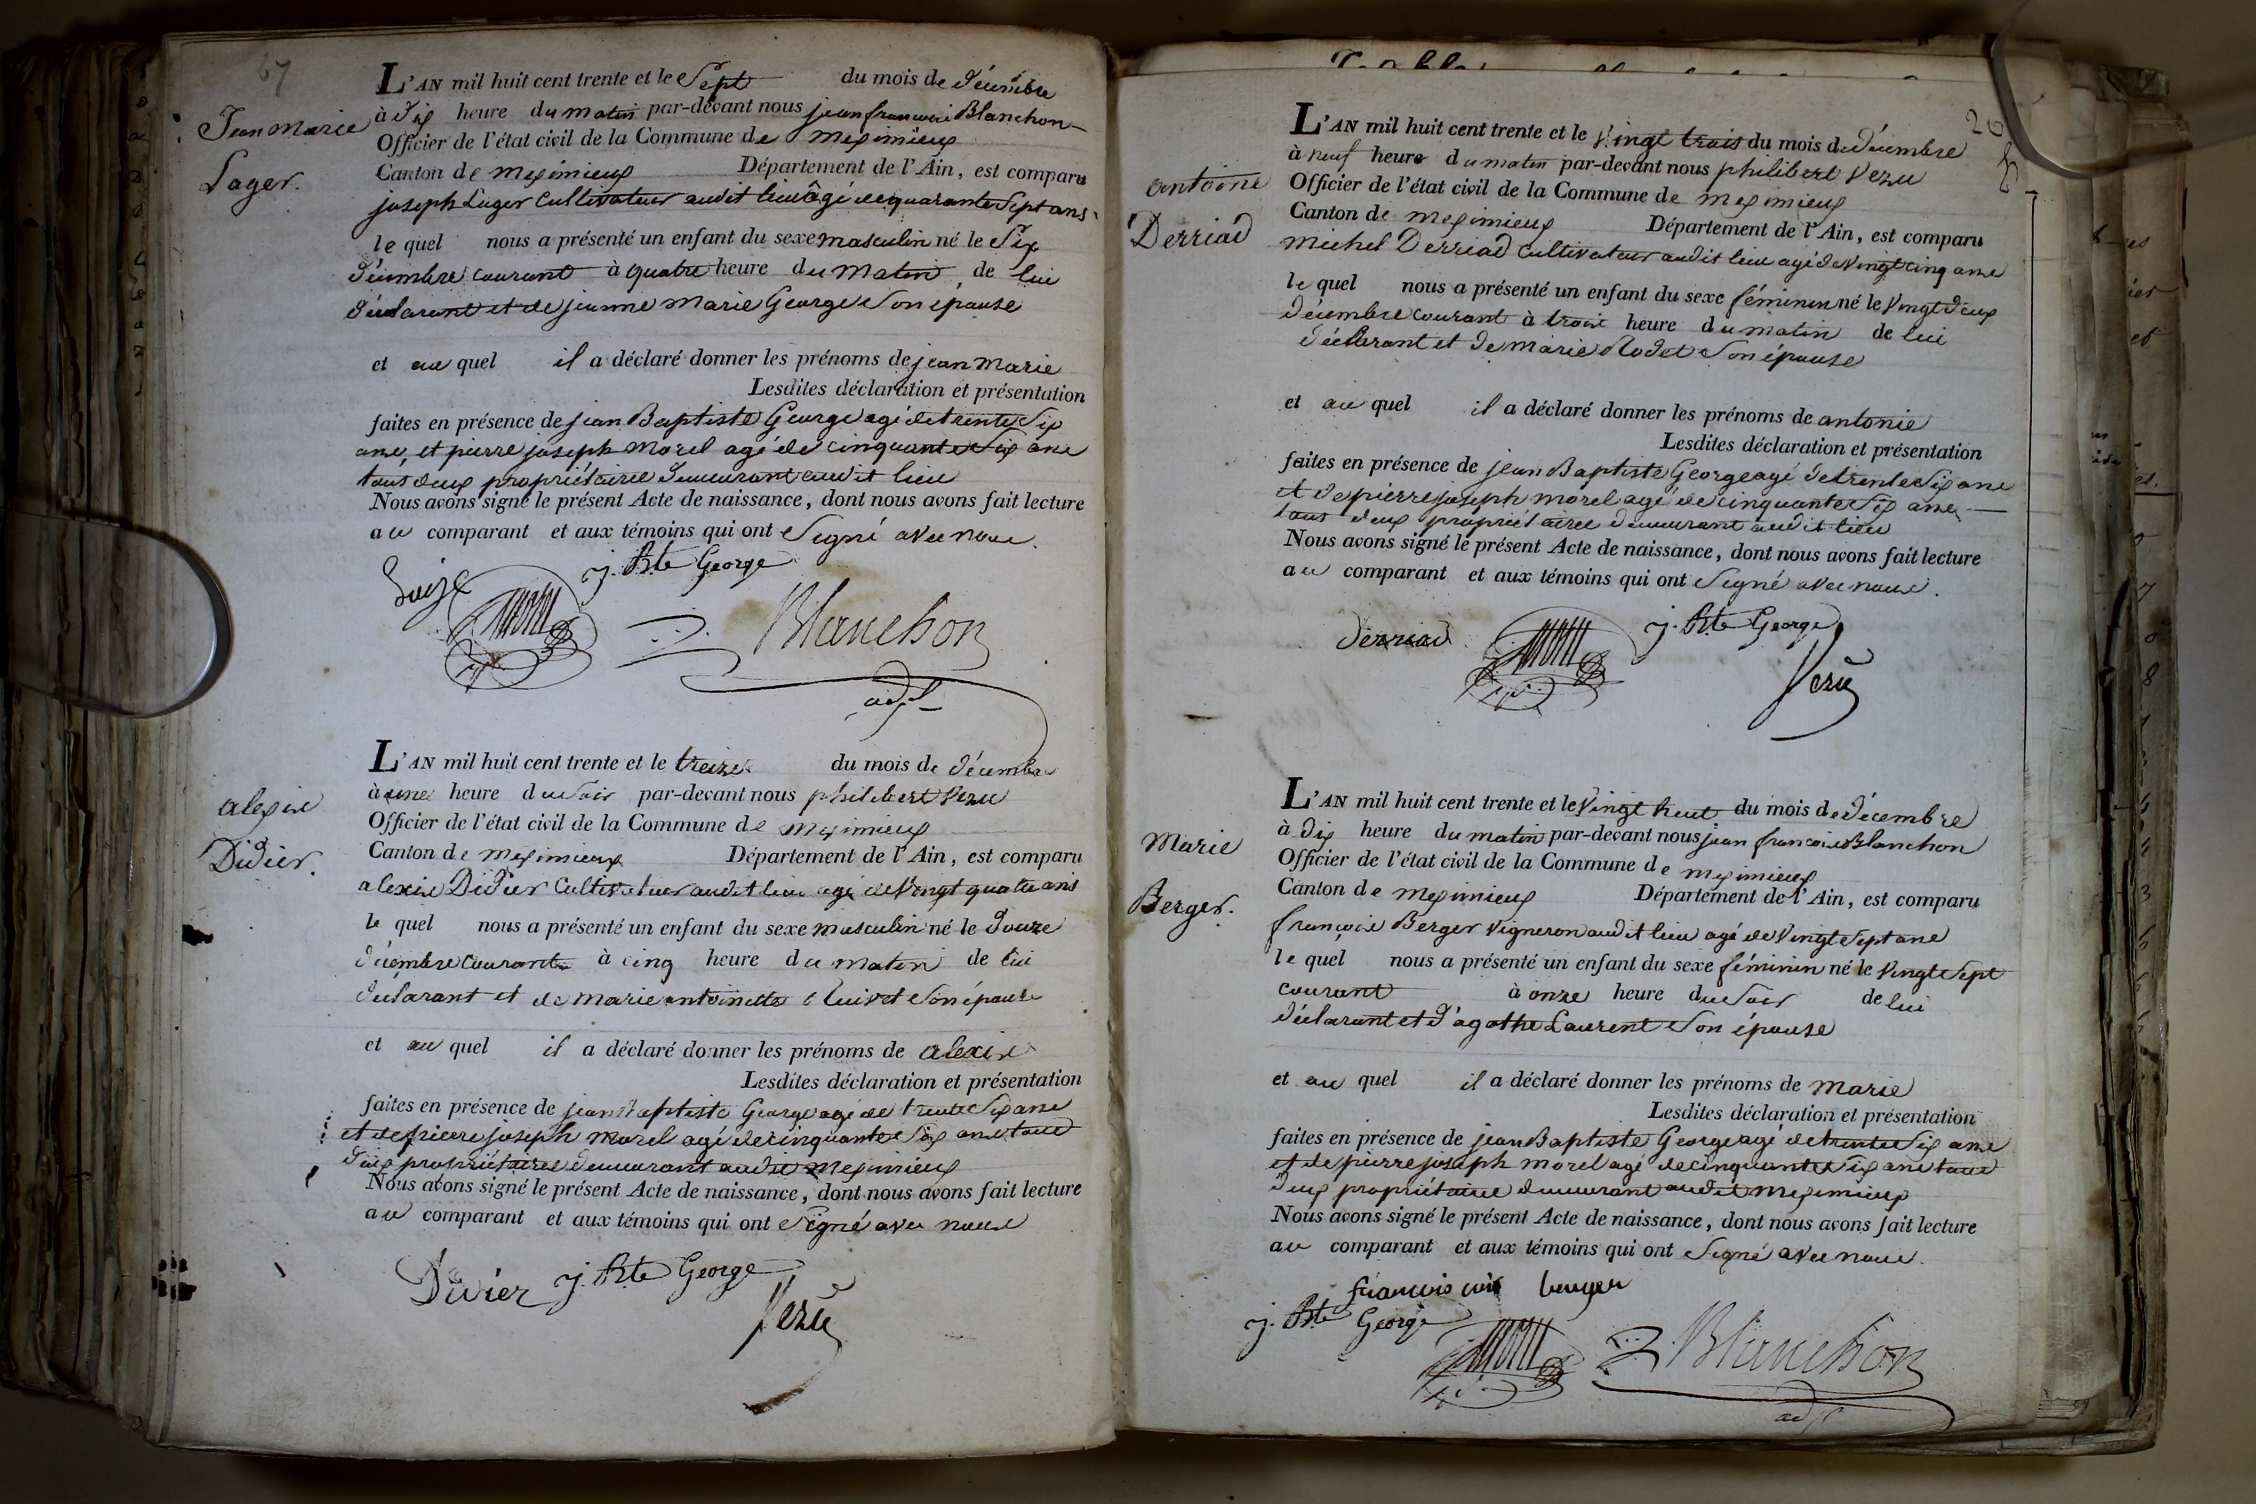 67
Jean Marie
Lager.
L'AN mil huit cent trente et le Sept du mois de décembre
à dix heure du matin par-devant nous jean francois Blanchon
Officier de l'état civil de la Commune de meximieux
Canton de meximieux Département de l'Ain, est comparu
joseph Lager Cultivateur audit lieu âgé de quarante Sept ans
le quel nous a présenté un enfant du sexe masculin né le Six
décembre courant à quatre heure du matin de lui
déclarant et de jeanne Marie George Son épouse
et au quel il a déclaré donner les prénoms de jean Marie
Lesdites déclaration et présentation
faites en présence de jean Baptiste George agé de trente Six
ans, et pierre joseph Morel agé de cinquante Six ans
tous deux propriétaires demeurant audit lieu
Nous avons signé le présent Acte de naissance, dont nous avons fait lecture
au comparant et aux témoins qui ont Signé avec nous.
j. Bte George
Blanchon
adjt
alexis
Didier.
L'AN mil huit cent trente et le treize du mois de décembre
à une heure du Soir par-devant nous philibert Vezu
Officier de l'état civil de la Commune de meximieux
Canton de meximieux Département de l'Ain, est comparu
alexis Didier Cultivateur audit lieu agé de Vingt quatre ans
le quel nous a présenté un enfant du sexe masculin né le Douze
décembre courant à cinq heure du matin de lui
déclarant et de marie antoinette Son épouse
et au quel il a déclaré donner les prénoms de alexis
Lesdites déclaration et présentation
faites en présence de jean Baptiste George agé de trente Six ans
et de pierre joseph Morel agé de cinquante Six ans tous
deux propriétaires demeurant audit Meximieux
Nous avons signé le présent Acte de naissance, dont nous avons fait lecture
au comparant et aux témoins qui ont Signé avec nous
Didier j. Bte George
Vezu
26
antoine
Derriad
L'AN mil huit cent trente et le Vingt trois du mois de décembre
à neuf heure du matin par-devant nous philibert Vezu
Officier de l'état civil de la Commune de meximieux
Canton de meximieux Département de l'Ain, est comparu
michel Derriad Cultivateur audit lieu agé de Vingt cinq ans
le quel nous a présenté un enfant du sexe féminin né le Vingt deux
décembre courant à trois heure du matin de lui
déclarant et de marie Rodet Son épouse
et au quel il a déclaré donner les prénoms de antonie
Lesdites déclaration et présentation
faites en présence de jean Baptiste George agé de trente Six ans
et de pierre joseph morel agé de cinquante Six ans
tous deux propriétaires demeurant audit lieu
Nous avons signé le présent Acte de naissance, dont nous avons fait lecture
au comparant et aux témoins qui ont Signé avec nous.
derriad j. Bte George
Vezu
Marie
Berger.
L'AN mil huit cent trente et le Vingt huit du mois de décembre
à dix heure du matin par-devant nous jean francois Blanchon
Officier de l'état civil de la Commune de meximieux
Canton de meximieux Département de l'Ain, est comparu
françois Berger Vigneron audit lieu agé de Vingt Sept ans
le quel nous a présenté un enfant du sexe féminin né le Vingt Sept
courant à onze heure du Soir de lui
déclarant et d'agathe Laurent Son épouse
et au quel il a déclaré donner les prénoms de Marie
Lesdites déclaration et présentation
faites en présence de jean Baptiste George agé de trente Six ans
et de pierre joseph morel agé de cinquante Six ans tous
deux propriétaires demeurant audit Meximieux
Nous avons signé le présent Acte de naissance, dont nous avons fait lecture
au comparant et aux témoins qui ont Signé avec nous.
francois berger
j. Bte George
Blanchon
adjt